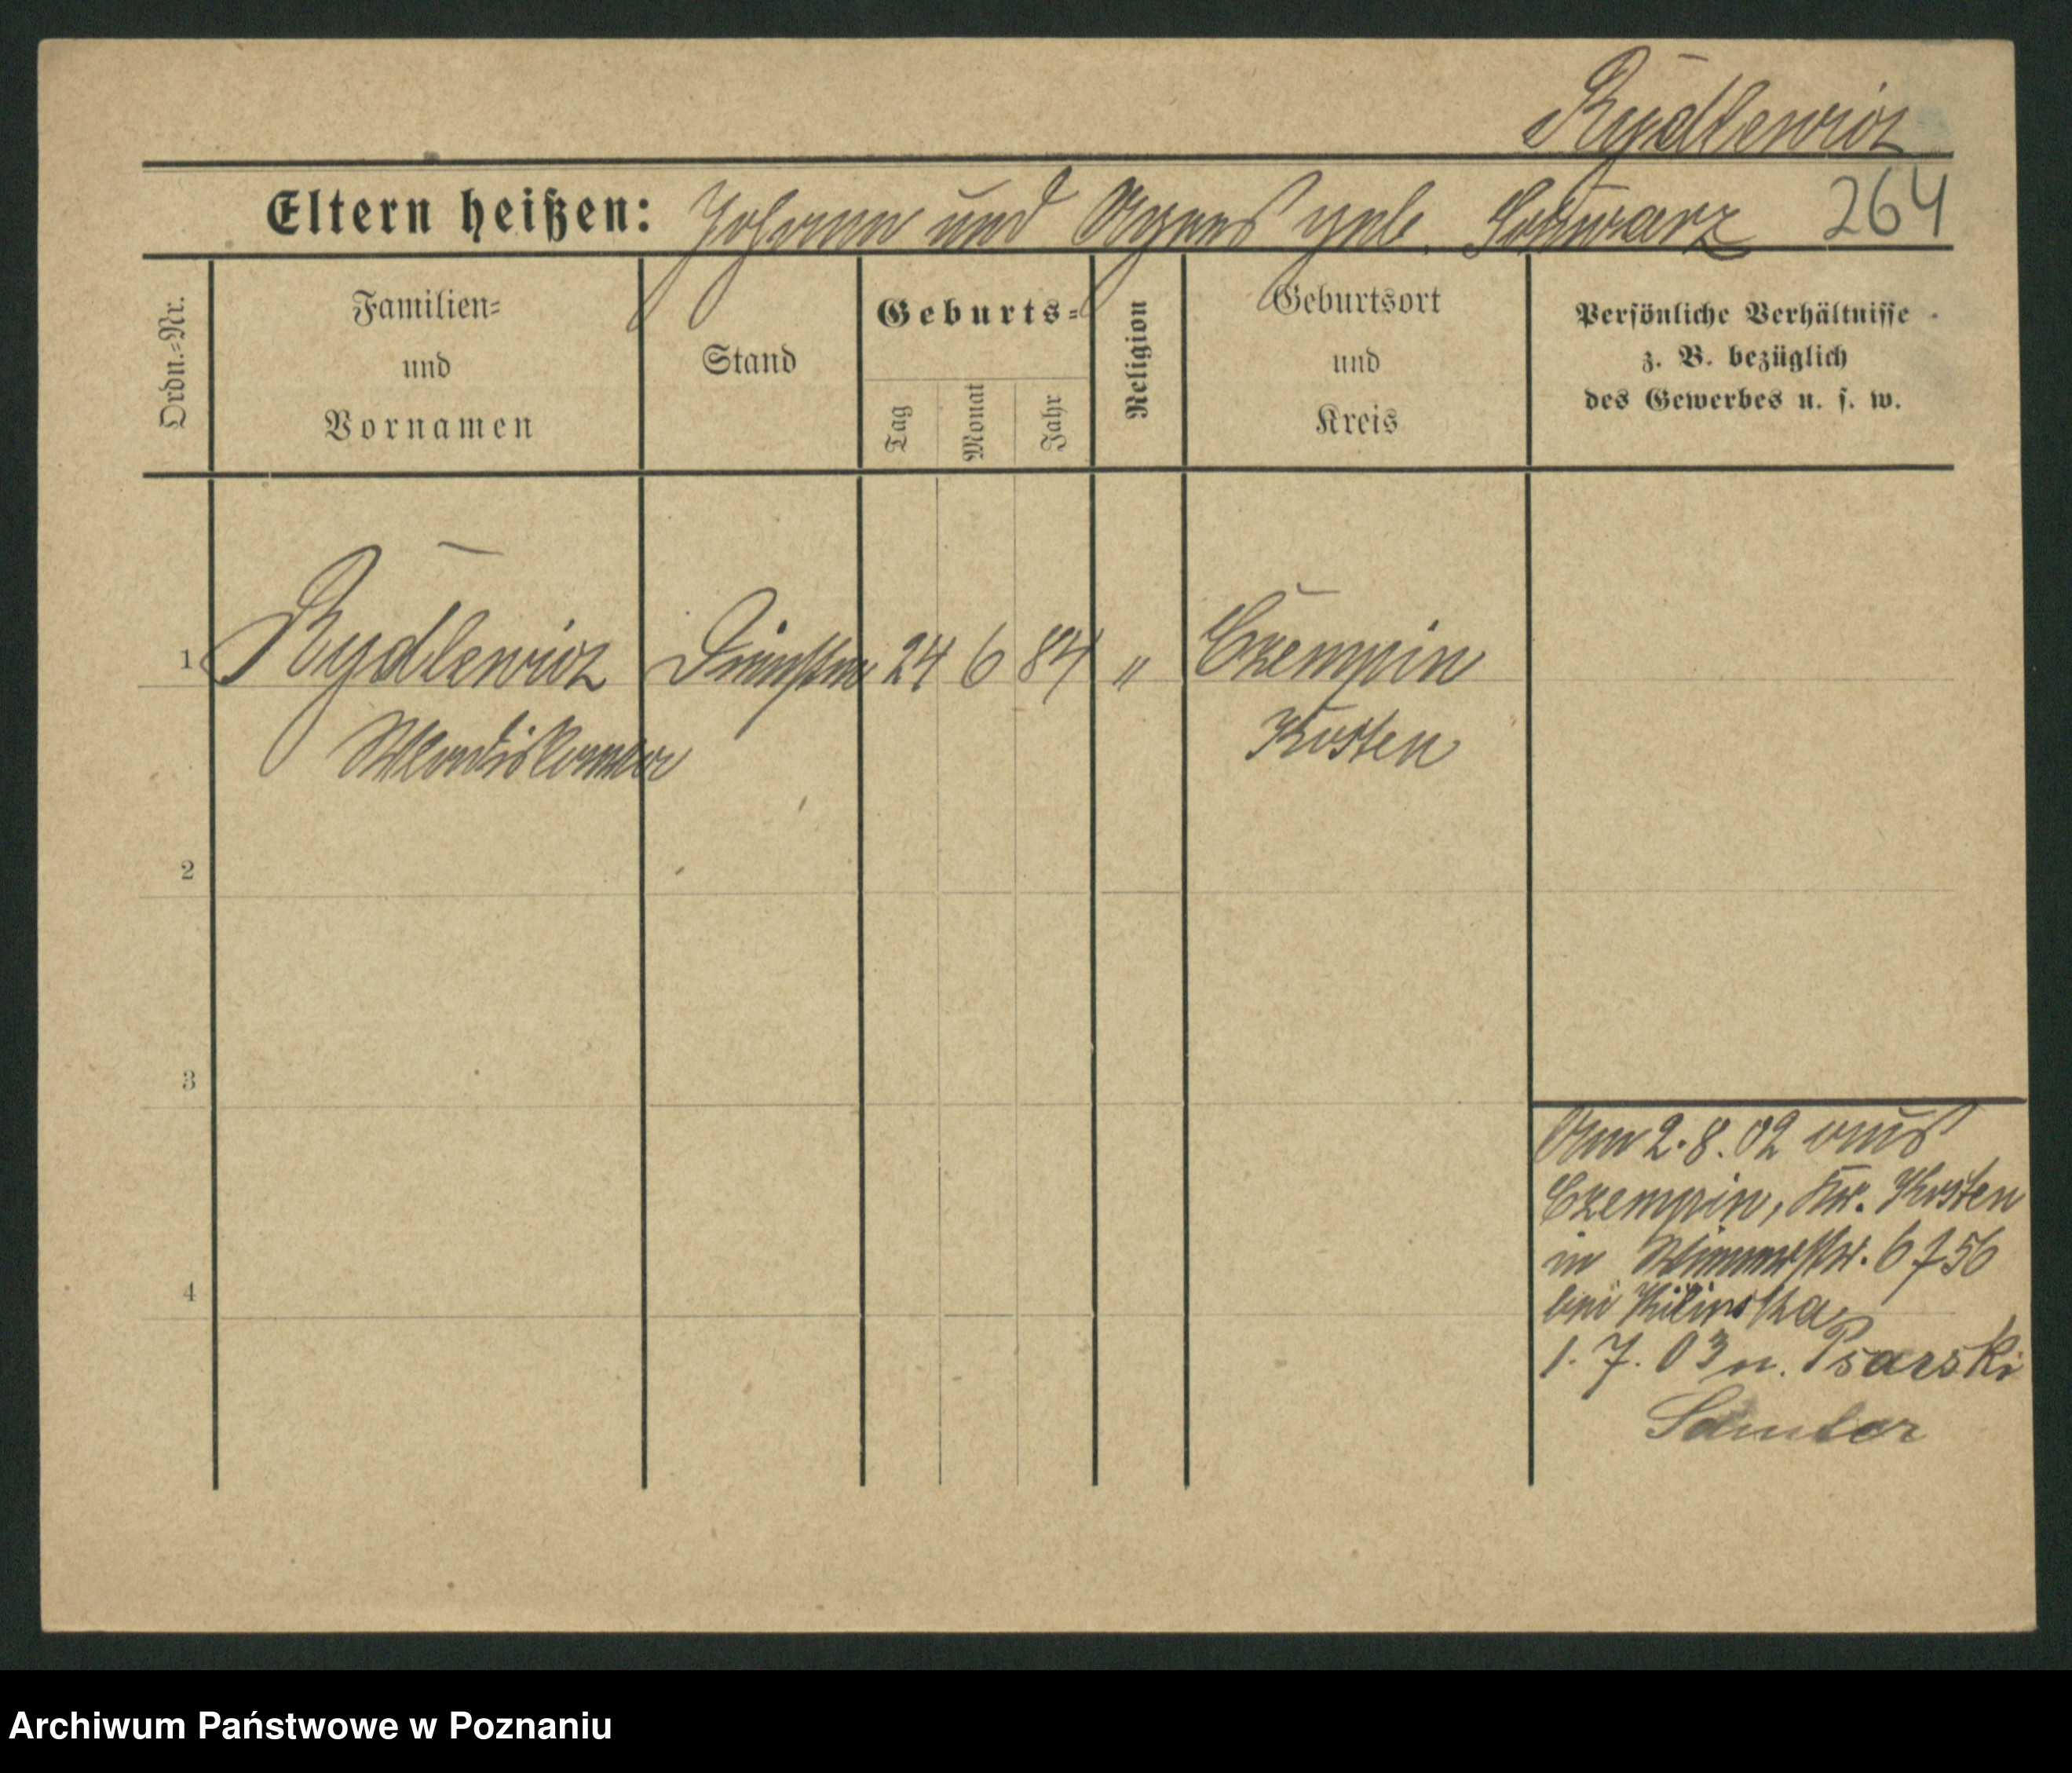 Rydlewicz
Eltern heißen: Johann und Agnes geb. Schwarz 264
Ordn.-Nr.
Familien-
und
Vornamen
Stand
Geburts-
Tag
Monat
Jahr
Religion
Geburtsort
und
Kreis
Persönliche Verhältnisse
z. B. bezüglich
des Gewerbes u. s. w.
1 Rydlewicz 24 6 84 " Czempin
Kosten
2
3
4
Am 2.8.02 aus
Czempin, Kr. Kosten
in 6
bei
1.7.03 n. Psarski
Samter
Archiwum Państwowe w Poznaniu